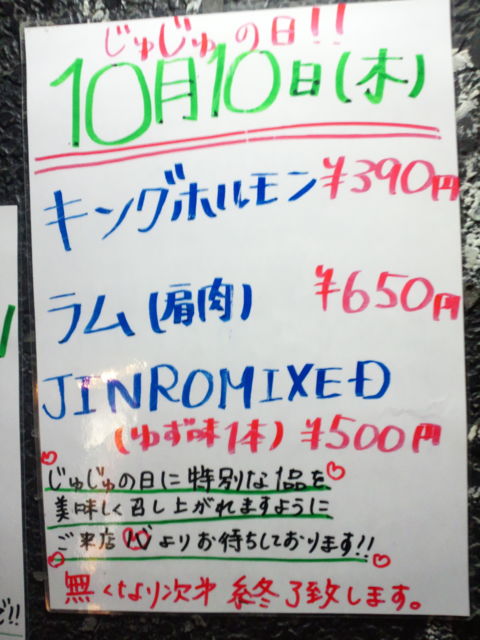 じゅじゅの日!!
10月10日(木)
キングホルモン ¥390円
ラム(肩肉) ¥650円
JINROMIXED
(ゆず味1本) ¥500円
じゅじゅの日に特別な1品を
美味しく召し上がれますように
ご来店心よりお待ちしております!!
無くなり次第終了致します。